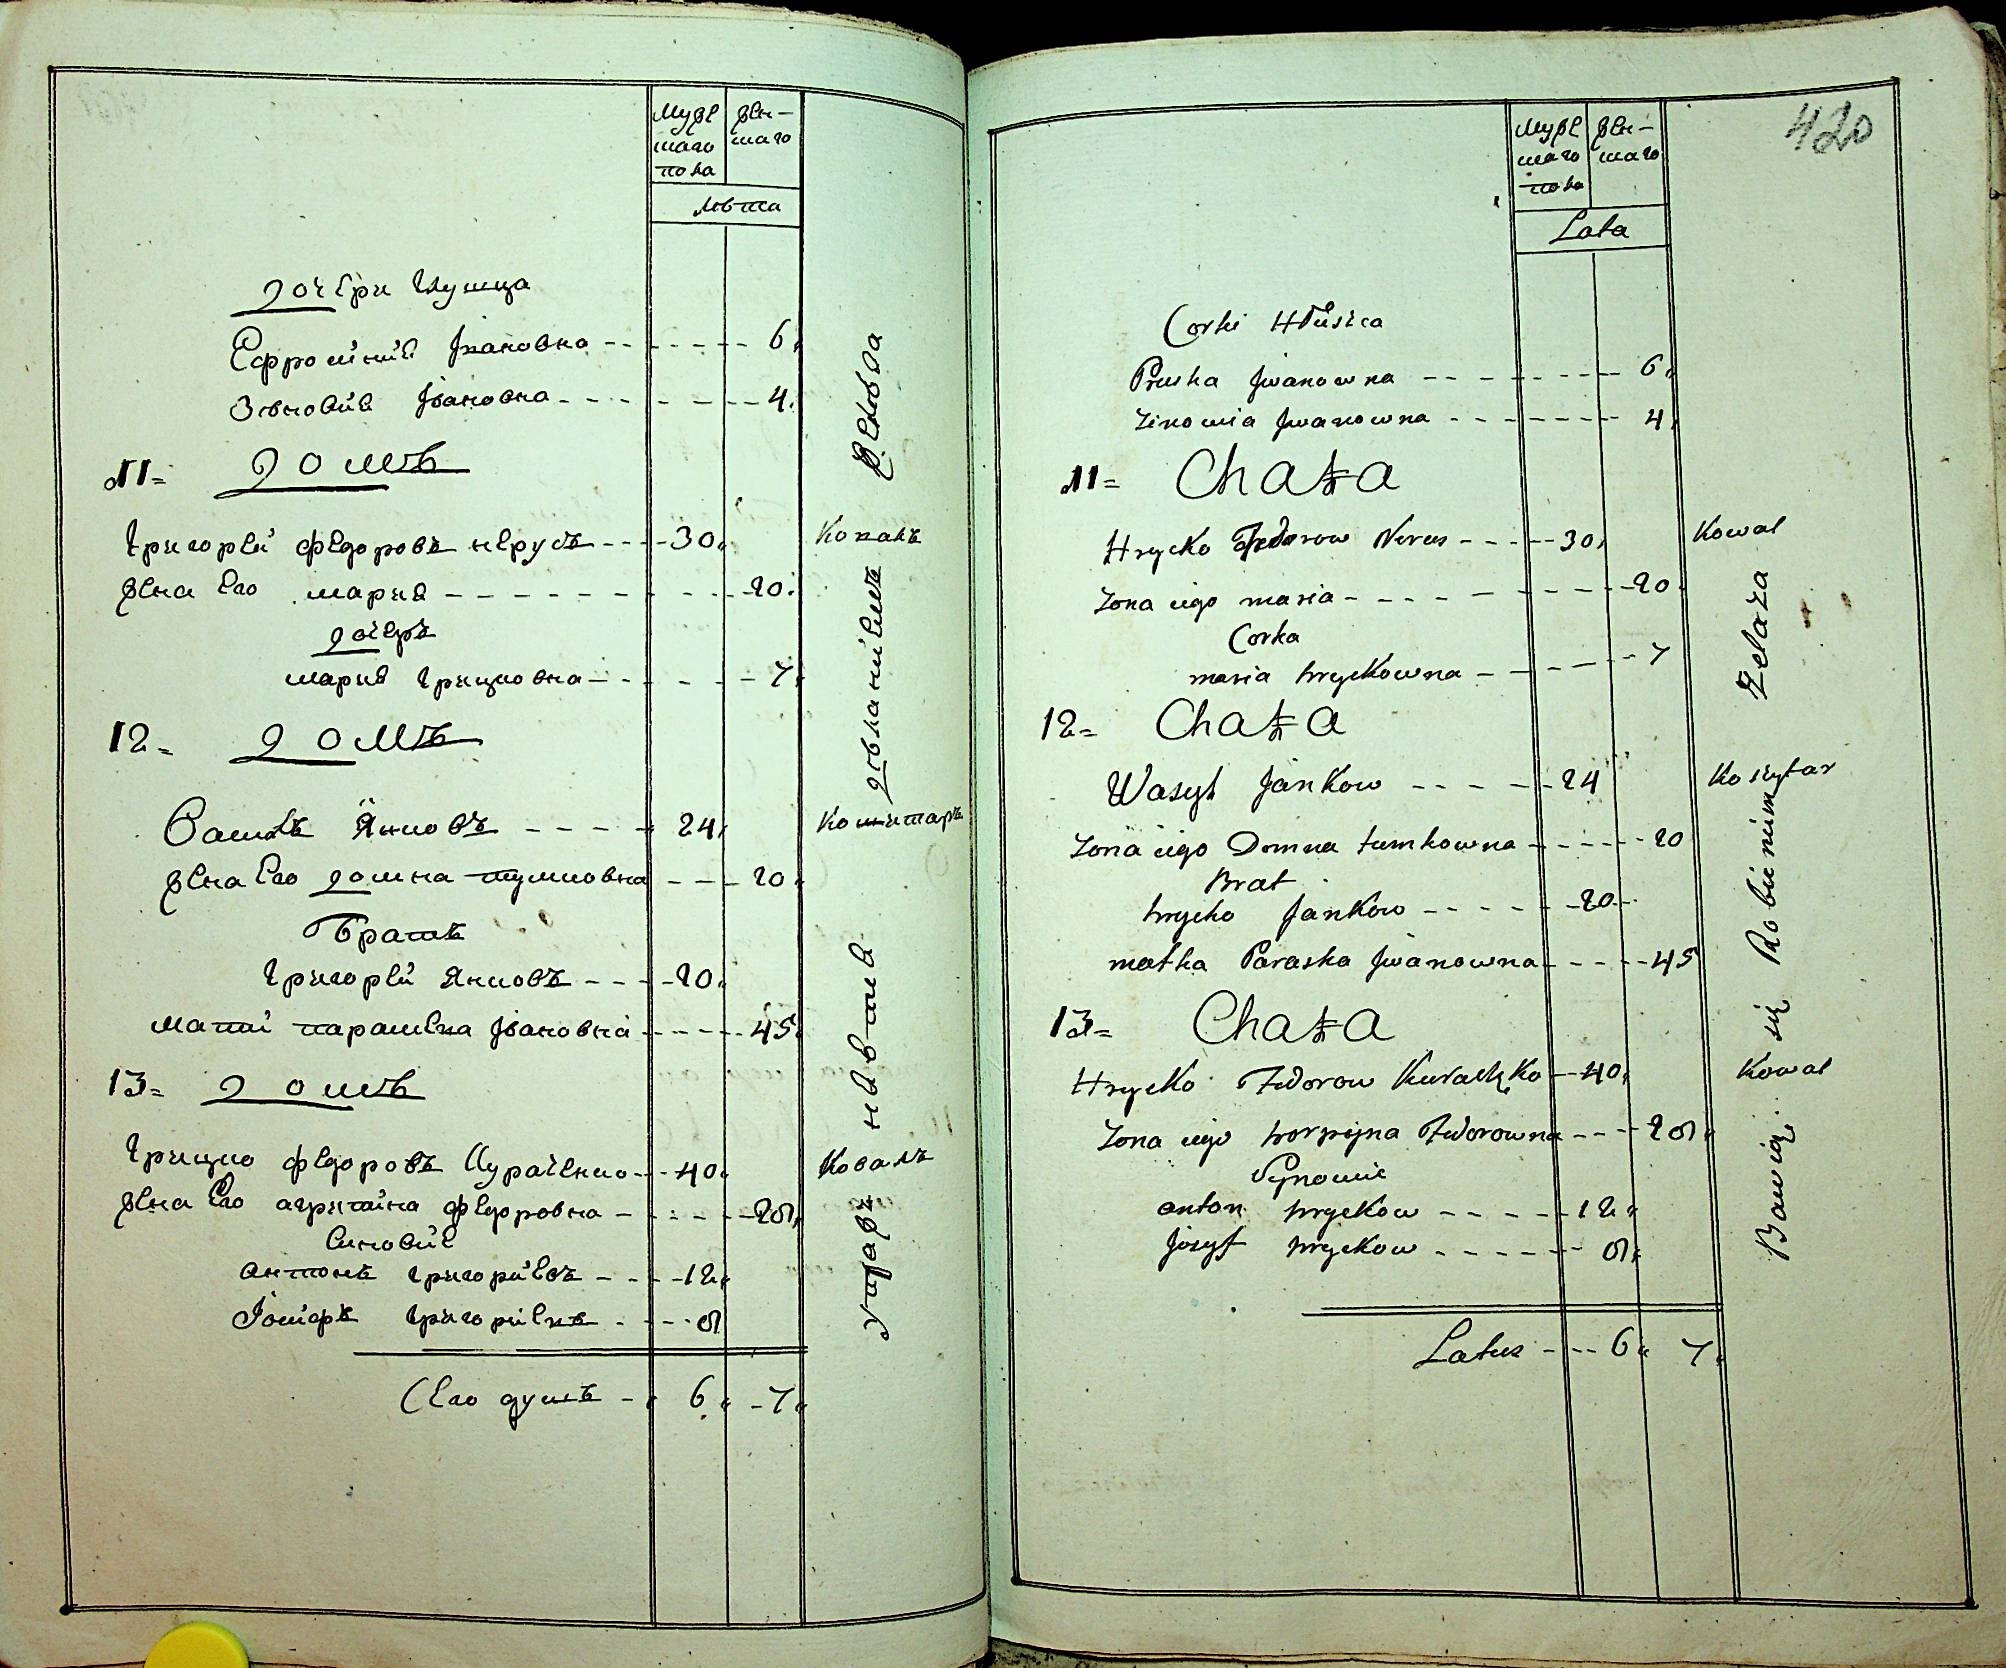 Муже
шаго
пола
жен-
шаго
лѣта
дочери Глушца
Ефросинія Івановна 6
Зѣновія Івановна 4
11= домъ
Григорей Федоровъ Нерусъ 30 Ковалъ
жена его мария 20
дочеръ
мария Грицковна 7
12= домъ
Василъ Янковъ 24 Кошитаръ
жена его домна тумковна 20
Братъ
Григорей Янковъ 20
мати парасска Івановна 45
13= домъ
Грицко Федоровъ Кураченко 40 Ковалъ
жена его агрипина Федоровна 28
Синовіе
антонъ Григориевъ 12
Іосифъ Григориевъ 8
Сего душъ 6 7
деланіемъ железа
420
Муже
шаго
пола
жен-
шаго
Lata
Corki Hłusica
Pruska Jwanowna 6
Zinowia Jwanowna 4
11= Chata
Hrycko Fedorow Nerus 30 Kowal
Zona iego maria 20
Corka
maria hryckowna 7
12= Chata
Wasyl Jankow 24 Koszytar
Zona iego Domna tumkowna 20
Brat
hrycko Jankow 20
matka Paraska Jwanowna 45
13= Chata
Hrycko Fedorow Kuraczko 40 Kowal
Zona iego horpyna Fedorowna 28
Synowie
anton hryckow 12
Jozyf hryckow 8
Latus 6 7
Bawią się Robieniem Żelaza